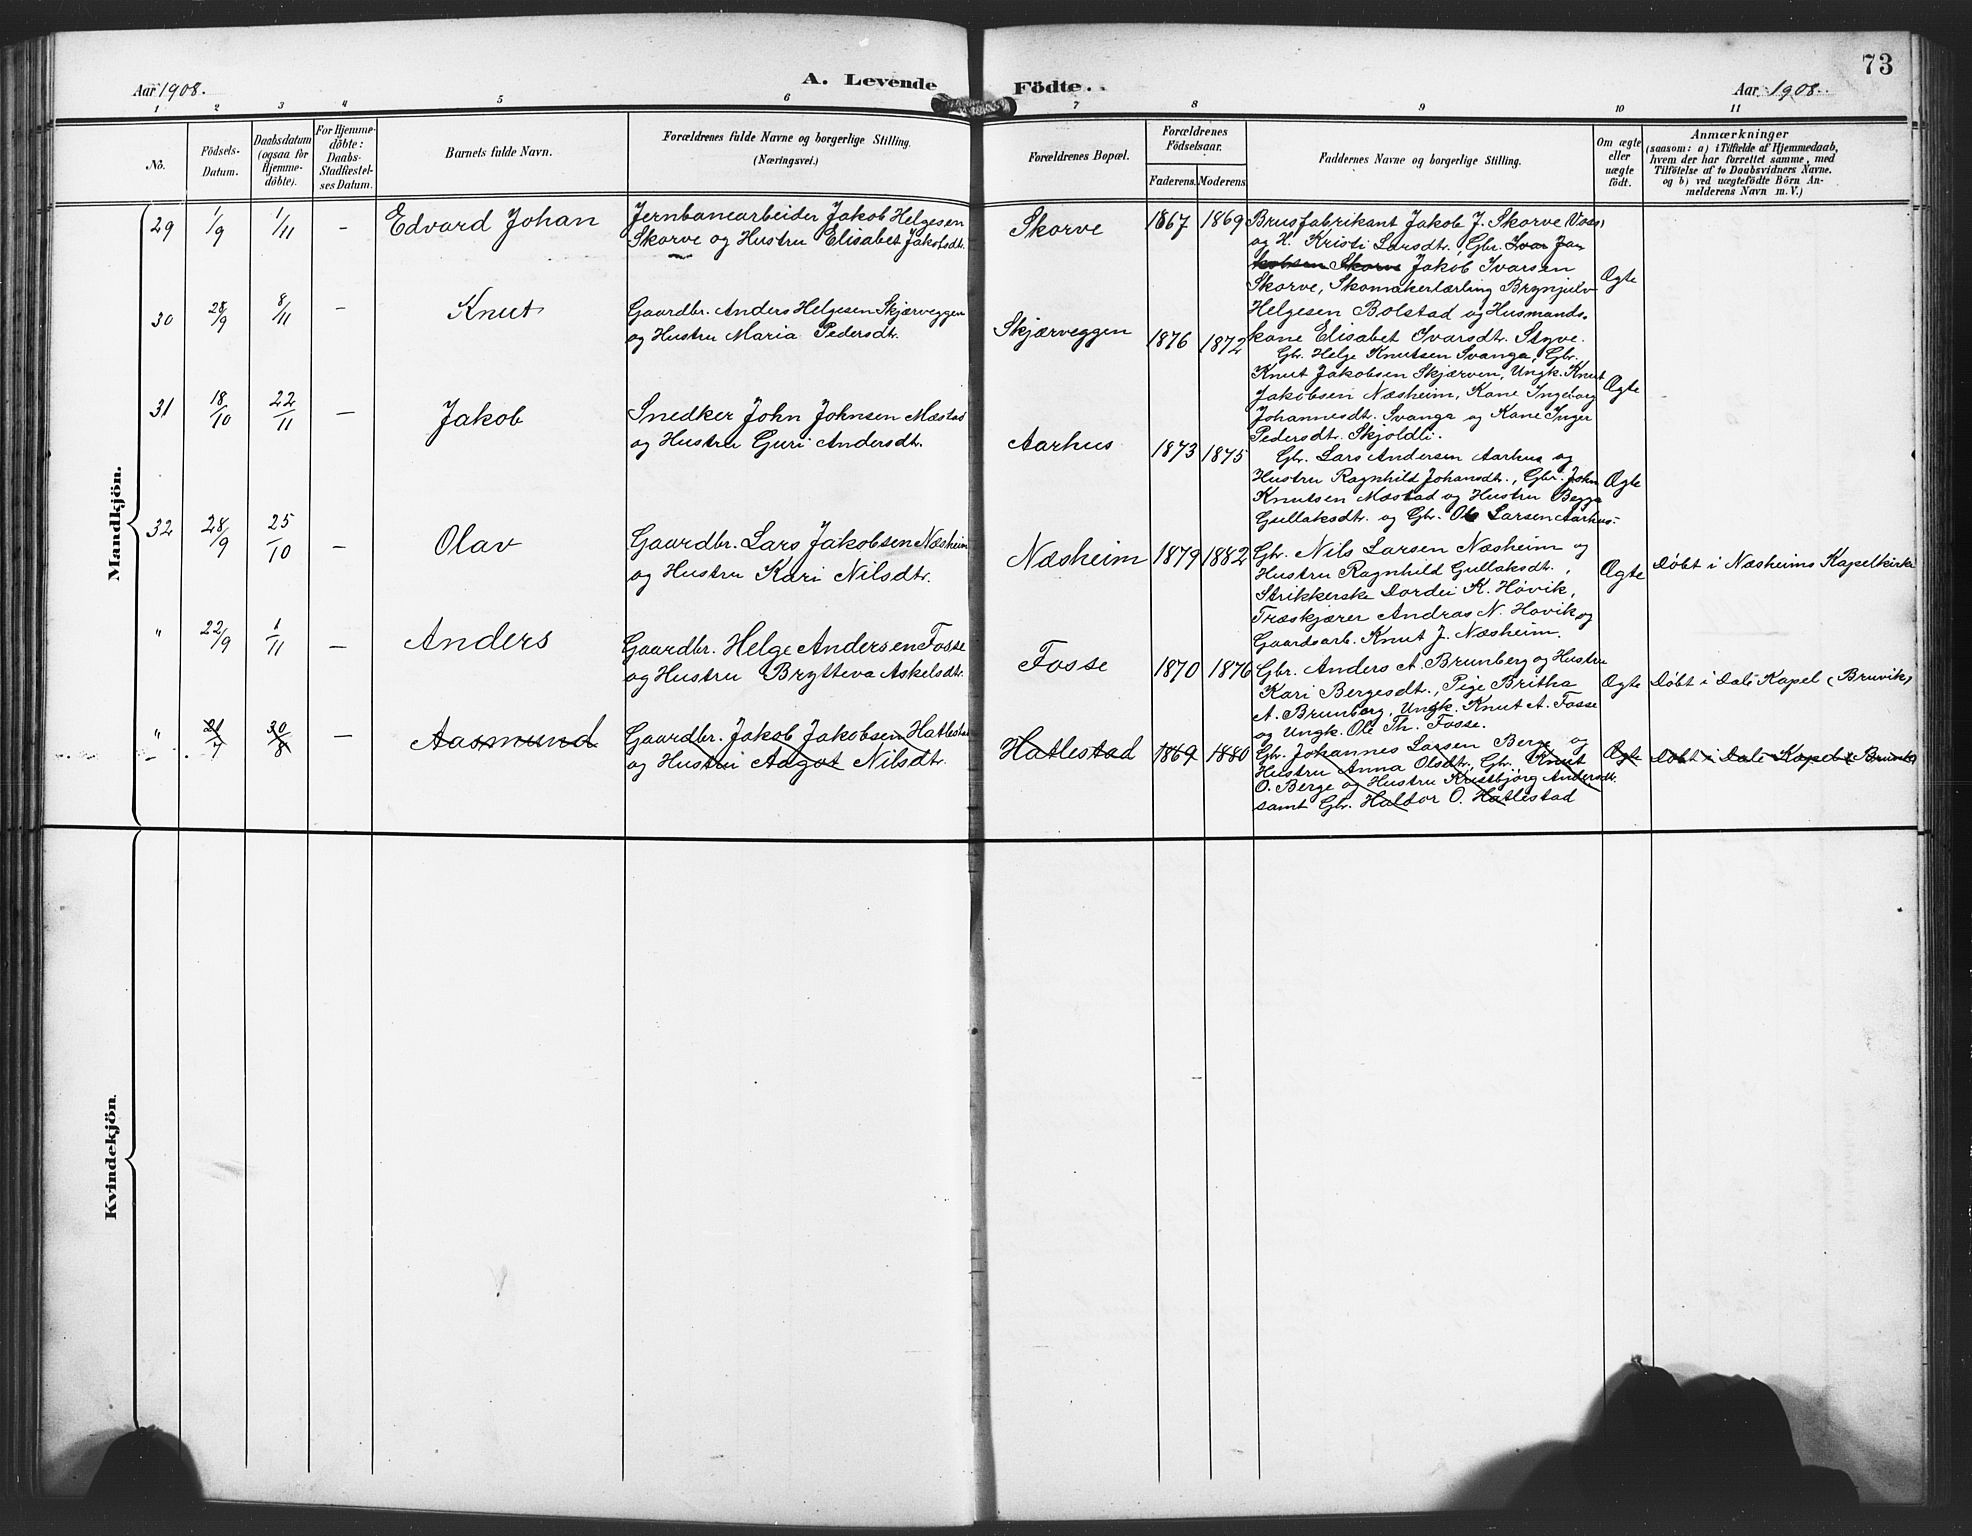 73
Aar 1908.
A. Levende Födte.
Aar 1908.
1 2 3 4 5 6 7 8 9 10 11
No.
Födsels-Datum.
Daabsdatum (ogsaa for Hjemme-döbte).
For Hjemme-döbte: Daabs-Stadfæstel-ses Datum.
Barnets fulde Navn.
Forældrenes fulde Navne og borgerlige Stilling.
(Næringsvei.)
Forældrenes Bopæl.
Forældrenes Födselsaar.
Faderens. Moderens.
Faddernes Navne og borgerlige Stilling.
Om ægte eller uægte födt.
Anmærkninger
(saasom: a) i Tilfælde af Hjemmedaab,
hvem der har forrettet samme, med
Tilföielse af to Daabsvidners Navne.
og b) ved uægtefödte Börn An-
melderens Navn m. V.)
Mandkjön.
29 1/9 1/11 – Edvard Johan
Jernbanearbeider Jakob Helgesen
Skorve og Hustru Elisabet Jakobsdt.
Skorve 1867 1869
Brusfabrikant Jakob J. Skorve (Voss)
og H. Kristi Larsdtr., Gbr. Ivar Ja-
kobsen Skorve Jakob Ivarsen
Skorve, Skomakerlærling Brynjulv
Helgesen Bolstad og Husmands-
kone Elisabet Ivarsdtr. Styve.
Ægte
30 28/9 8/11 – Knut
Gaardbr. Anders Helgesen Skjærveggen
og Hustru Maria Pedersdtr.
Skjærveggen 1876 1872
Gbr. Helge Knutsen Svanga, Gbr.
Knut Jakobsen Skjærven, Ungk. Knut
Jakobsen Næsheim, Kone Ingeborg
Johannesdtr. Svanga og Kone Inger
Pedersdtr. Skjoldli.
Ægte
31 18/10 22/11 – Jakob
Snedker John Johnsen Mæstad
og Hustru Guri Andersdtr.
Aarhus 1873 1875
Gbr. Lars Andersen Aarhus og
Hustru Ragnhild Johansdtr., Gbr. John
Knutsen Mæstad og Hustru Begga
Gullaksdtr. og Gbr. Ole Larsen Aarhus.
Ægte
32 28/9 25/10 – Olav
Gaardbr. Lars Jakobsen Næsheim
og Hustru Kari Nilsdtr.
Næsheim 1879 1882
Gbr. Nils Larsen Næsheim og
Hustru Ragnhild Gullaksdt.,
Strikkerske Dordei K. Hovik,
Træskjærer Andras N. Hovik og
Gaardsarb. Knut J. Næsheim.
Ægte
Døbt i Næsheims Kapelkirke
" 22/9 1/11 – Anders
Gaardbr. Helge Andersen Fosse
og Hustru Brytteva Askelsdtr.
Fosse 1870 1876
Gbr. Anders A. Brunberg og Hustru
Kari Bergesdt., Pige Britha
A. Brunberg, Ungk. Knut A. Fosse
og Ungk. Ole Th. Fosse.
Ægte
Døbt i Dale Kapel (Bruvik)
" 21/7 30/8 – Aasmund
Gaardbr. Jakob Jakobsen Hatlestad
og Hustru Aagot Nilsdtr.
Hatlestad 1869 1880
Gbr. Johannes Larsen Berge og
Hustru Anna Olsdtr, Gbr. Knut
O. Berge og Hustru Kristbjørg Andersdt.
samt Gbr. Haldor O. Hatlestad
Ægte
Døbt i Dale Kapel (Bruvik)
Kvindekjön.